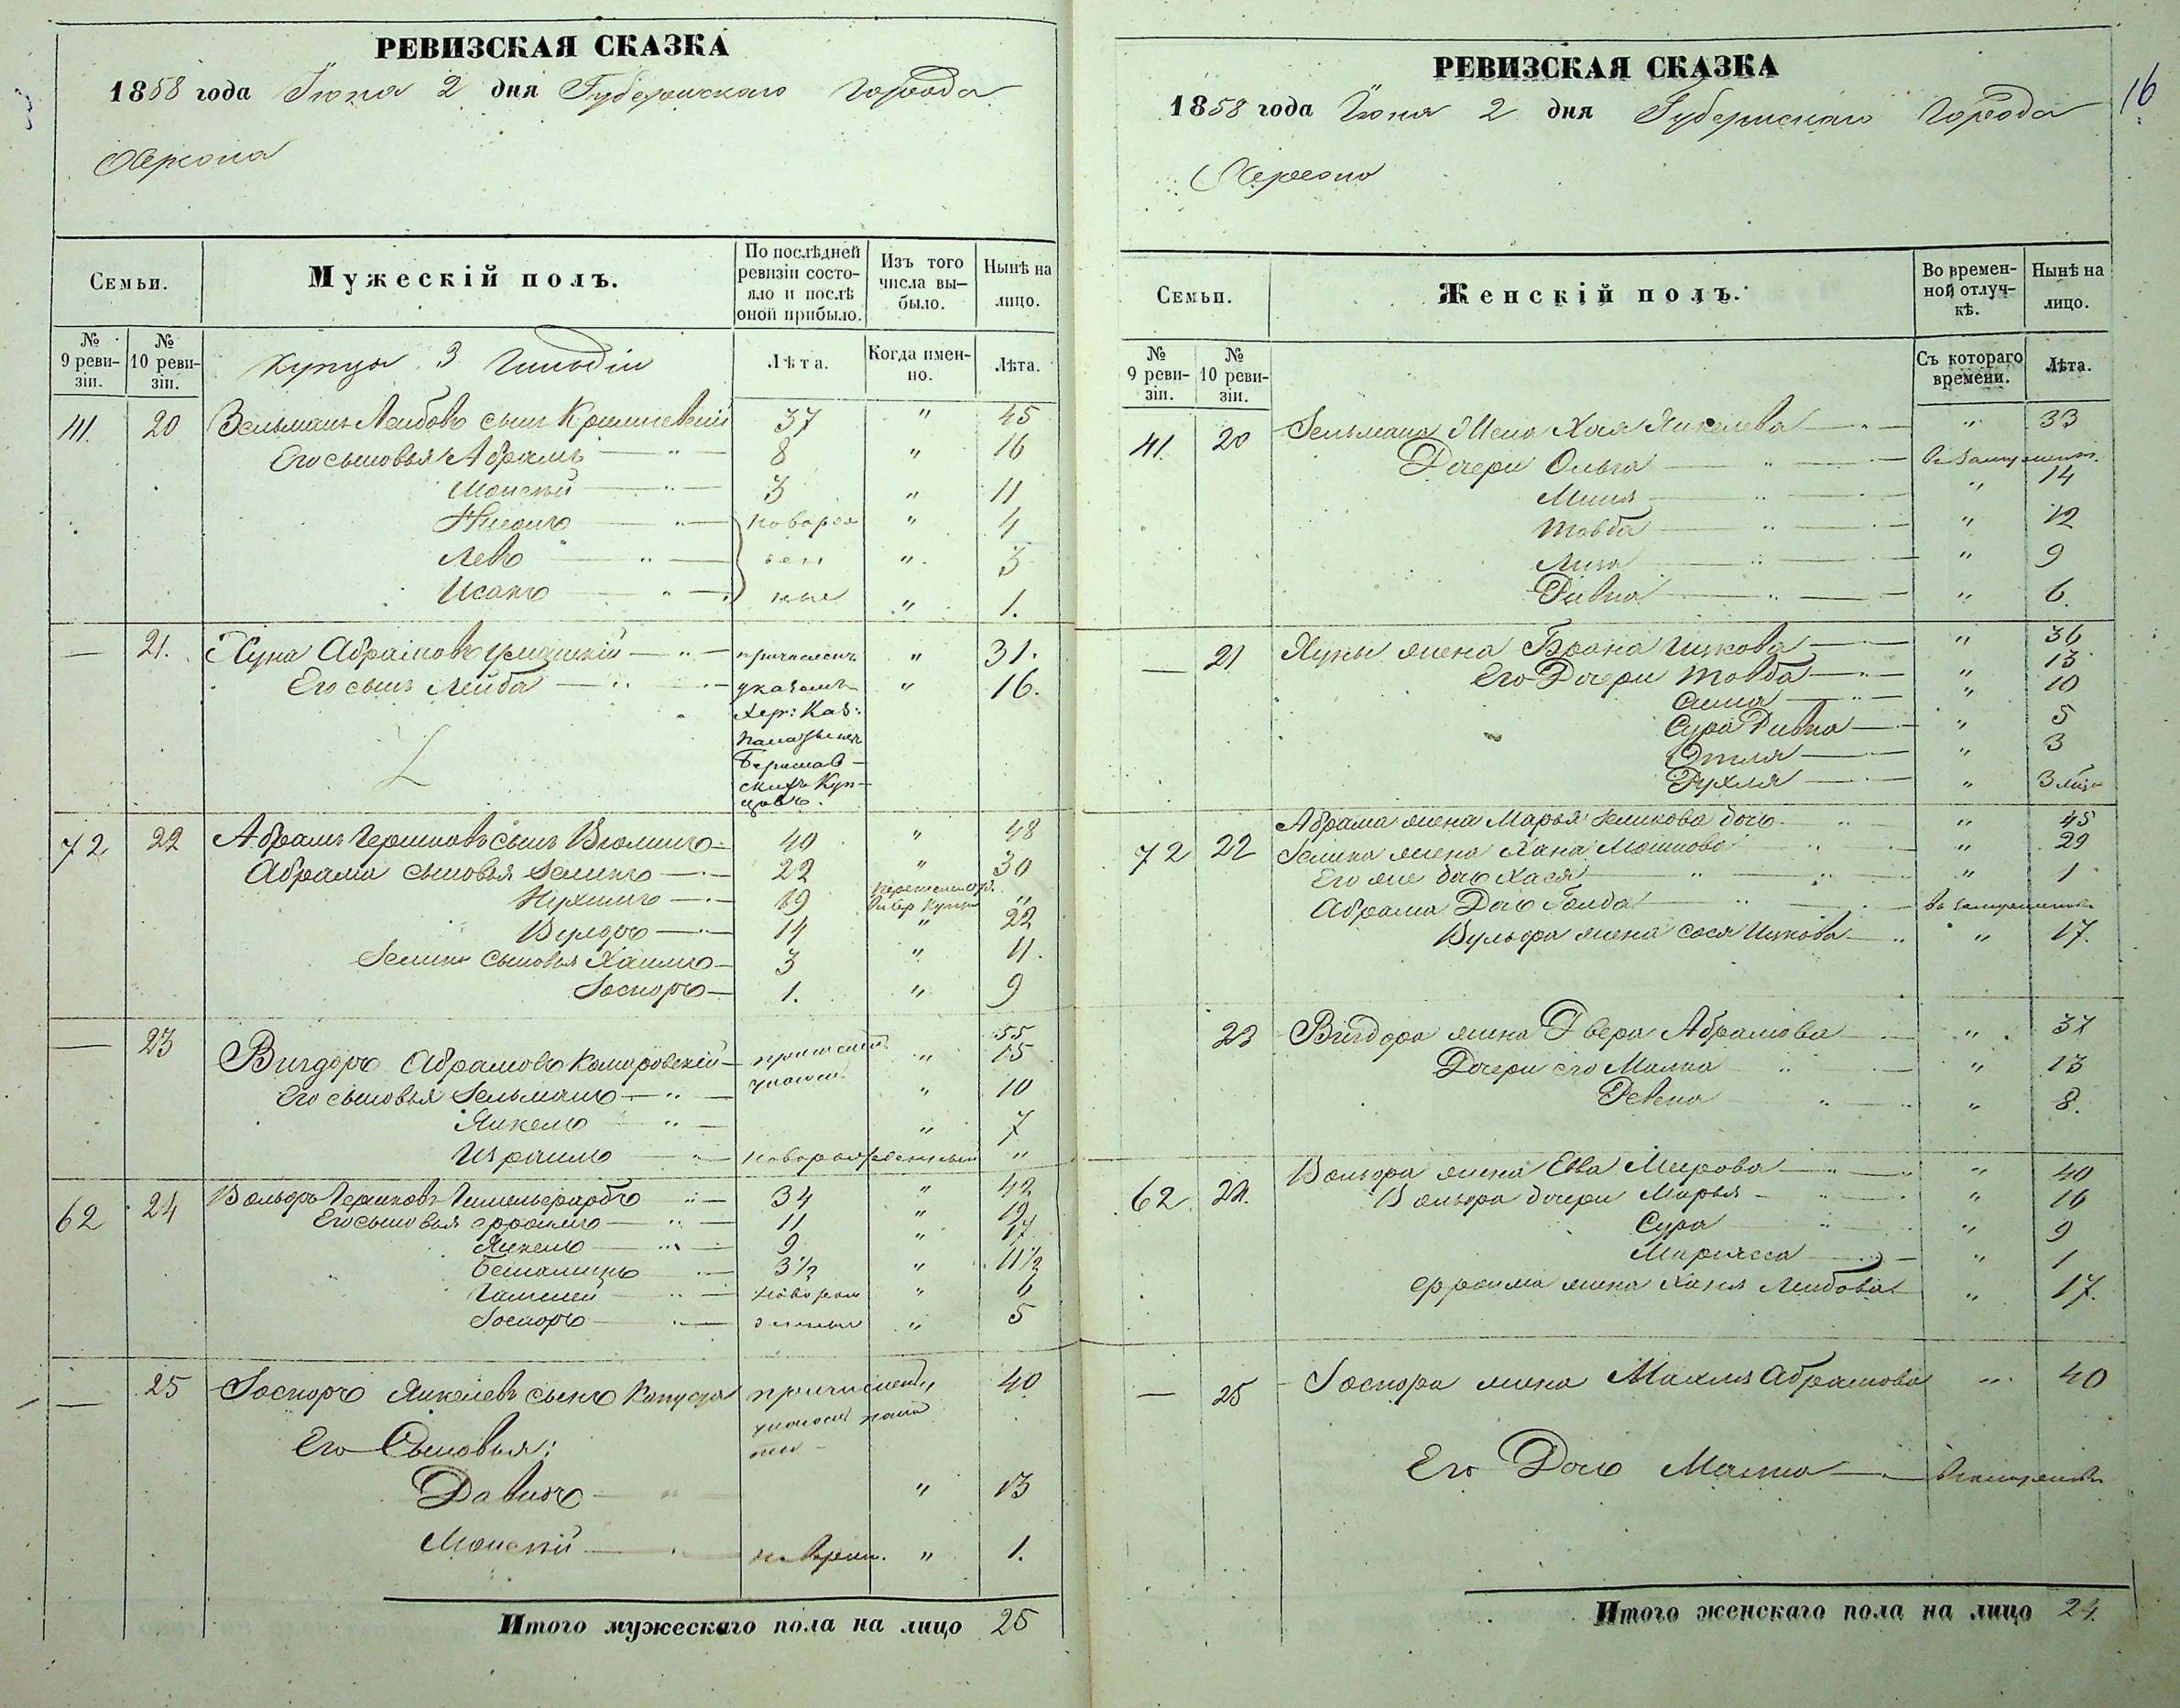 РЕВИЗСКАЯ СКАЗКА
1858 года Іюня 2 дня Губернскаго Города
Херсона
Семьи.
Мужескій полъ.
По послѣдней ревизіи состо-
яло и послѣ
оной прибыло.
Изъ того
числа вы-
было.
Нынѣ на
лицо.
№
9 реви-
зіи.
№
10 реви-
зіи.
Купцы 3 Гильдіи
Лѣта.
Когда имен-
но.
Лѣта.
41. 20 Зельманъ Лейбовъ сынъ 37 " 45
Его сыновья Абрамъ — " — 8 " 16
Моисей — " — 3 " 11
новорож " 4
Левъ — " — ден " 3
Исакъ — " — ные " 1.
— 21. Хуна Абрамовъ — " — причисленъ " 31.
Его сынъ Лейба — " — указомъ " 16.
Хер: Каз:
Палаты изъ
Берислав-
скихъ Куп-
цовъ.
72 22 Абрамъ Гершковъ сынъ 40 " 48
Абрама сыновья Зеликъ — " — 22 " 30
Нухимъ — " — 19 "
Вульфъ — " — 14 " 22
Зелика сыновья Хаимъ — 3 " 11.
Іосифъ — 1. " 9
— 23 Вигдоръ Абрамовъ Комаровскій — " 55
15
Его сыновья Зельманъ — " — " 10
Янкель — " — " 7
Израиль — " — новорожденный "
62 24 Вольфъ Гершковъ — " — 34 " 42
Его сыновья Ефроимъ — " — 11 " 19
Янкель — " — 9 " 17
— " — 3½ " 11½
— " — новорож " 6
Іосифъ — " — денные " 5
— 25 Іосифъ Янкелевъ сынъ Капуста причисленъ " 40
указомъ пала
ты —
Его Сыновья:
Давидъ — " " 13
Моисей — " новорож. " 1.
Итого мужескаго пола на лицо 25
РЕВИЗСКАЯ СКАЗКА
16
1858 года Іюня 2 дня Губернскаго Города
Херсона
Семьи.
Женскій полъ.
Во времен-
ной отлуч-
кѣ.
Нынѣ на
лицо.
№
9 реви-
зіи.
№
10 реви-
зіи.
Съ котораго
времени.
Лѣта.
41. 20 Зельмана Жена Хая Янкелева — " — " 33
Дочери Ольга — " — въ замужест.
" 14
Товба — " — " 12
Лиза — " — " 9
Ривка — " — " 6.
— 21 Хуны жена Брана Ицкова — " 36
Его Дочери Товба — " — " 13
— " — " 10
Сура Ривка — " 5
Этля — " 3
Рухля — " 3 мѣся
72 22 Абрама жена Марья Зеликова дочь " " 45
Зелика жена Хана Мошкова " " 29
Его же дочь Хася " — " 1
Абрама Дочь Голда — " — въ замужествѣ
Вульфа жена Сося Ицкова — " " 17.
23 Вигдора жена Двера Абрамова — " 37
Дочери его Малка " — " 13
" — " 8.
62 24. Вольфа жена Евва Меирова — " — " 40
Вольфа дочери Марья — " — " 16
Сура " — " 9
" — " 1
Ефроима жена Ханя Лейбова — " 17.
— 25 Іосифа жена Махля Абрамова " 40
Его Дочь Малка — " — въ замужест
Итого женскаго пола на лицо 24.